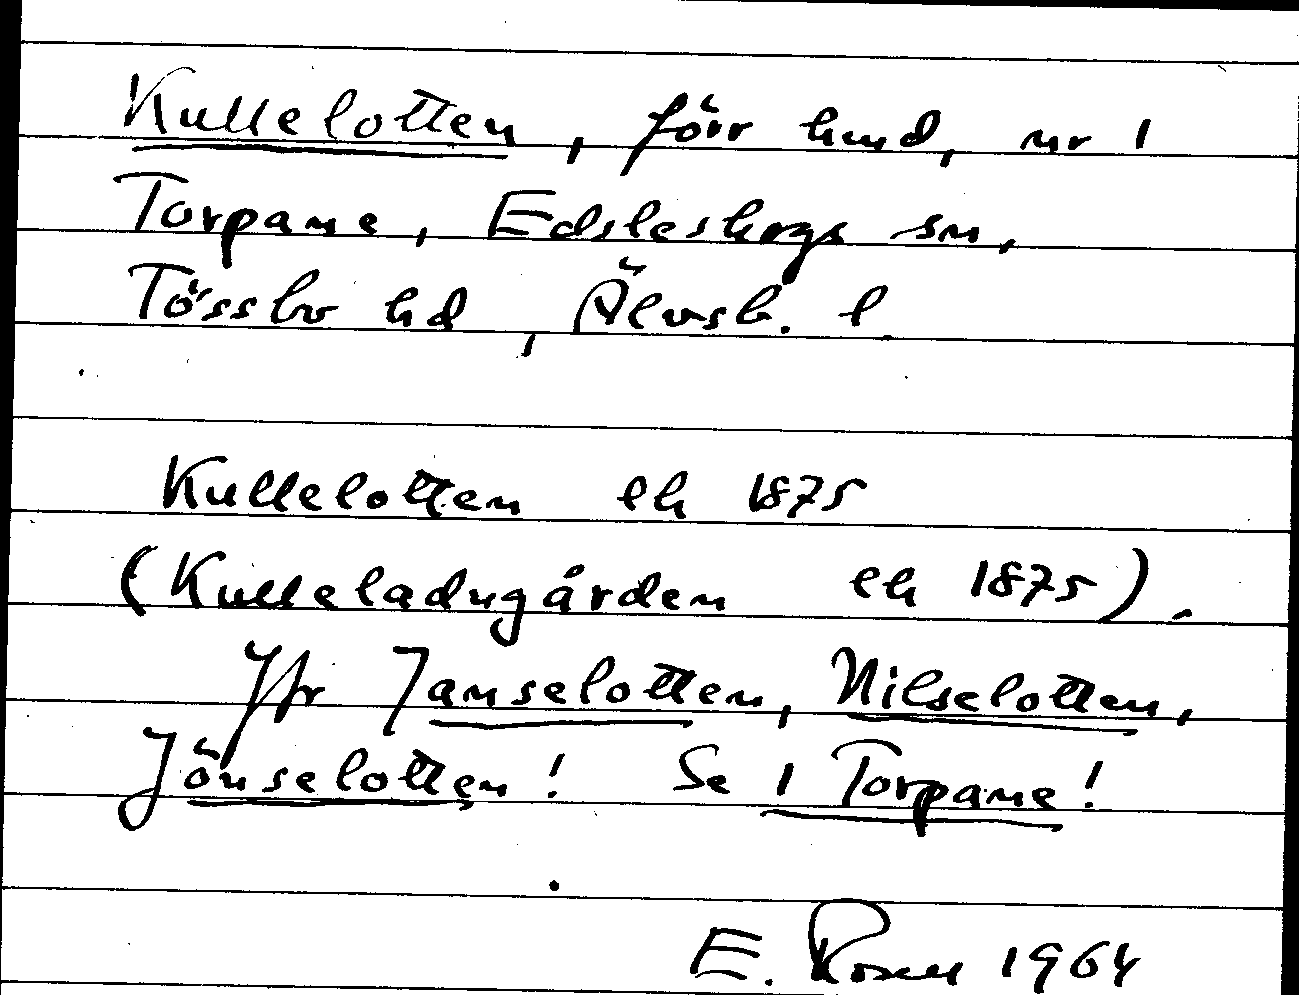 Kullelotten, förr hmd, nr 1
Torpane, Edsleskogs sn,
Tössbo hd, Älvsb. l.
Kullelotten lh 1875
(Kulleladugården lh 1875).
Jfr Janselotten, Nilselotten,
Jönselotten! Se 1 Torpane!
E. Rosell 1964